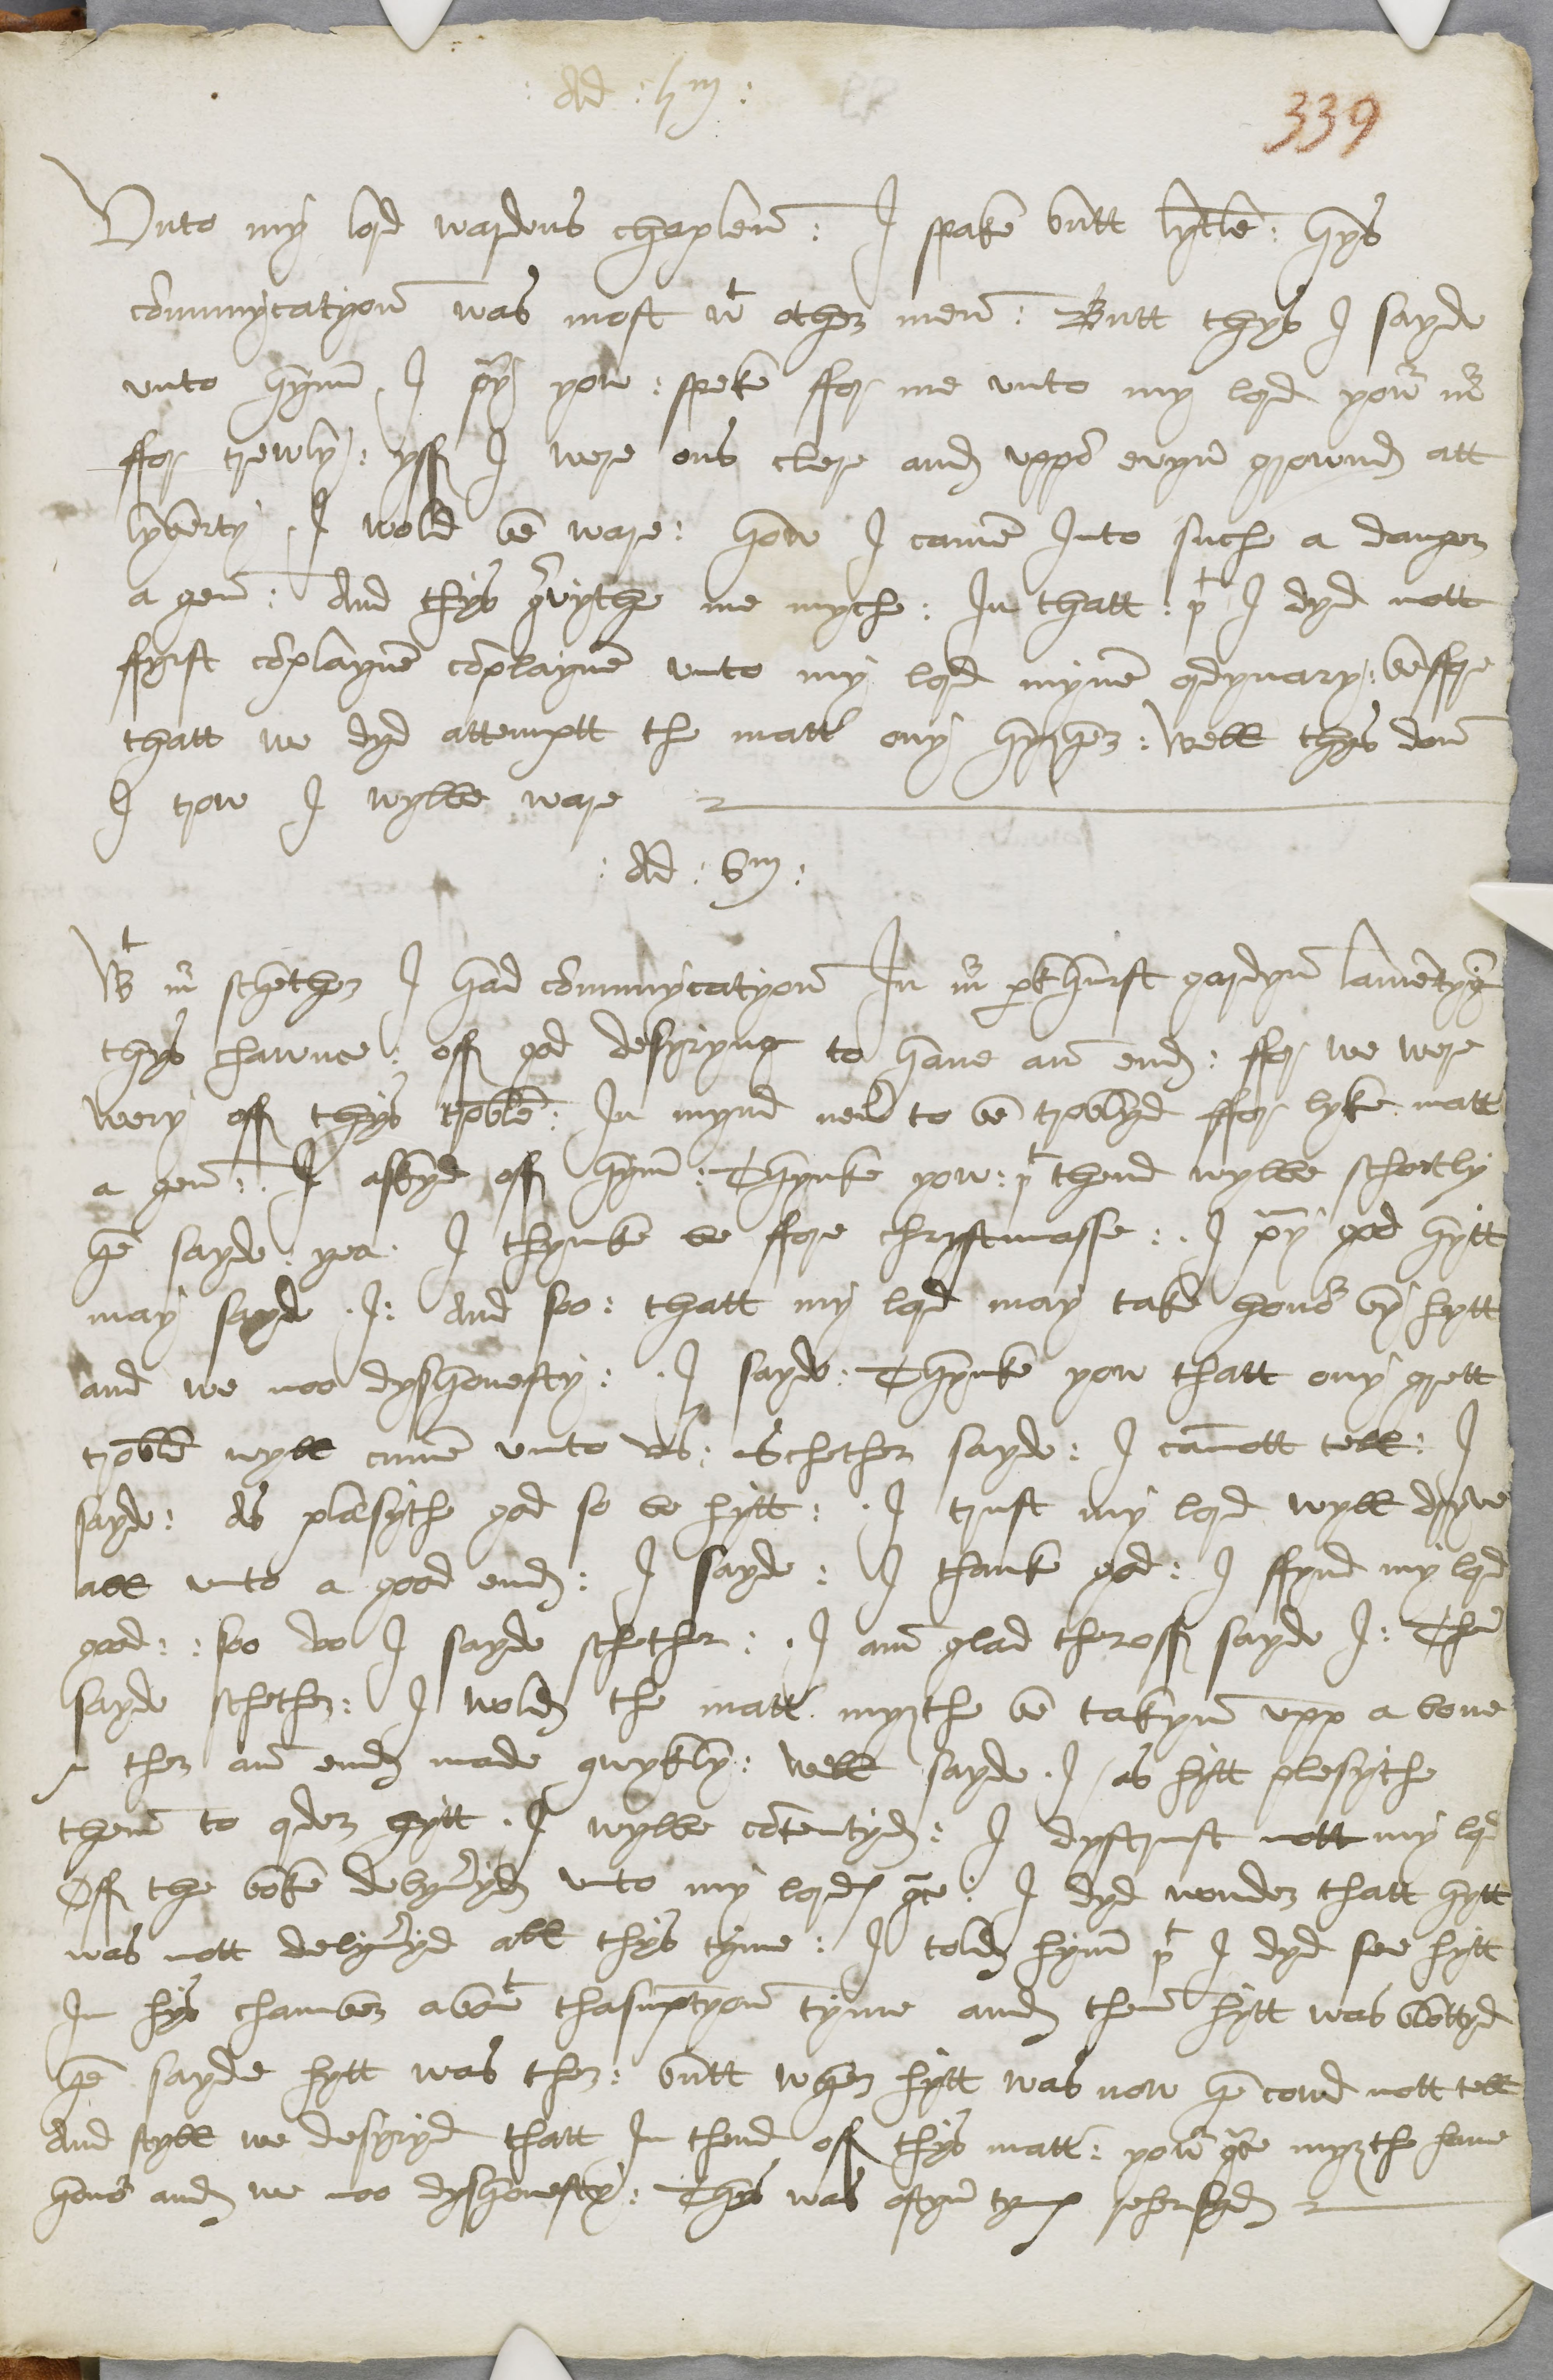 : Ad : iiijm :
339
Vnto my lord wardens chaplen : I spake butt lytle : hys
commycatyon was most wt other men : Butt thys I sayde
vnto hym , I pray yow : speke ffor me vnto my lord yowr mr
ffor trewly : yff I were ons clere and vppo evyn grownd att
lyberty , I wold be ware : how I came Into suche a danger
a gen : And thys grvythe me myche : In thatt : yt I dyd nott
ffyrst coplayne coplayne vnto my lord myne ordynary : beffore
thatt we dyd attemptt the matt ony hygher : Well thys don
I trow I wylbe ware
: Ad : vm :
Wt mr schether I had commycatyon In mr parkhurst gardyn lamentyg
thys chawnce : off god desyryng to have an end : ffor we were
wery off thys troble : In mynd never to be troblyd ffor lyke matt
a gen : . I askyd off hym : Thynke yow : yt thend wylbe schortly
he sayde : yea . I thynke be ffore chrystmasse : . I pray god hytt
may sayde . I : And soo : thatt my lord may take honor by hytt
and we noo dyshonesty : . I sayde : Thynke yow thatt ony grett
troble wyll cume vnto vs : Schether sayde : I cannott tell : I
sayde : As pleasythe god so be hytt : . I trust my lord wyll dryve
all vnto a good end : I sayde : I thank god : I ffynd my lord
good : : soo doo I sayde schether : . I am glad theroff sayde I : The
sayde schether : I wold the matt myzthe be takyn vpp a bove
& ther an end made quykly : well sayde . I , as hytt plesythe
them to order hytt . I wylbe contentyd : I dystrust nott my lord
Off the boke delyveryd vnto my lordes grace : I dyd wonder thatt hytt
was nott delyveryd all thys tyme : I told hym yt I dyd see hytt
In hys chamber abowt thasumptyon tyme and then hytt was blottyd
he sayde hytt was ther : butt wher hytt was now he cowd nott tell
And styll we desyryd thatt In thend off thys matt : yowr grace myzthe have
honor and we noo dyshonesty : Thys was oftyn tymes rehersyd